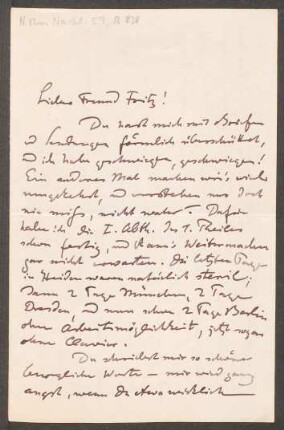 Lieber Freund Fritz!
Du hast mich mit Briefen
u Sendungen förmlich überschüttet,
und ich habe geschwiegen, geschwiegen!
Ein anderes Mal machen wir's wieder
umgekehrt, und verstehen uns doch
nie miß, nicht wahr. Dafür
habe ich die I. Abth. des I. Theiles
schon fertig, und kann's Weitermachen
gar nicht erwarten. Die letzten Tage
in Heiden waren natürlich steril;
dann 2 Tage München, 2 Tage
Dresden, und nun schon 2 Tage Berlin
ohne Arbeitsmöglichkeit, jetzt sogar
ohne Clavier.
Du schreibst mir so schöne
Worte – mir wird ganz
angst, wenn Du etwa wirklich